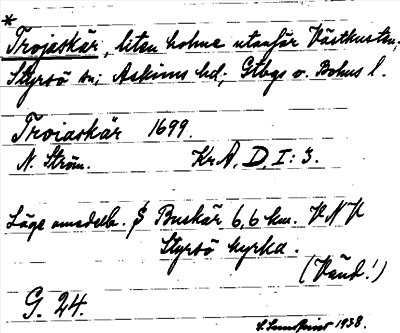 *
Trojaskär, liten holme utanför Västkusten,
Styrsö sn; Askims hd; Gtbgs o. Bohus l.
Trojaskär 1699.
N. Ström. KrA, D, I: 3.
Läge omedelb. S Buskär 6,6 km. VNV
Styrsö kyrka.
(Vänd!)
G. 24.
S. Sundqvist 1938.